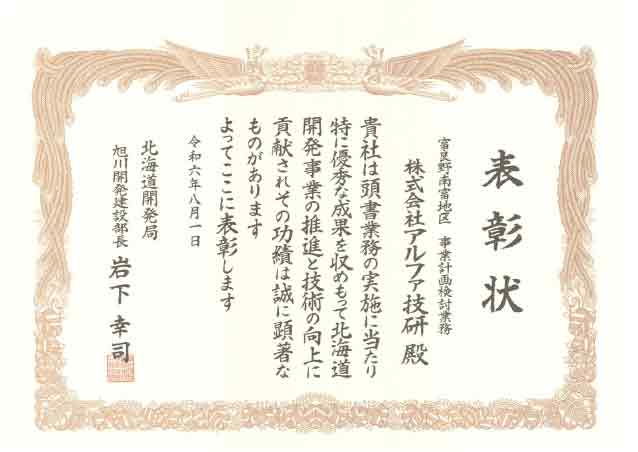 表彰状
富良野南富地区 事業計画検討業務
株式会社アルファ技研 殿
貴社は頭書業務の実施に当たり
特に優秀な成果を収めもって北海道
開発事業の推進と技術の向上に
貢献されその功績は誠に顕著な
ものがあります
よってここに表彰します
令和六年八月一日
北海道開発局
旭川開発建設部長 岩下幸司